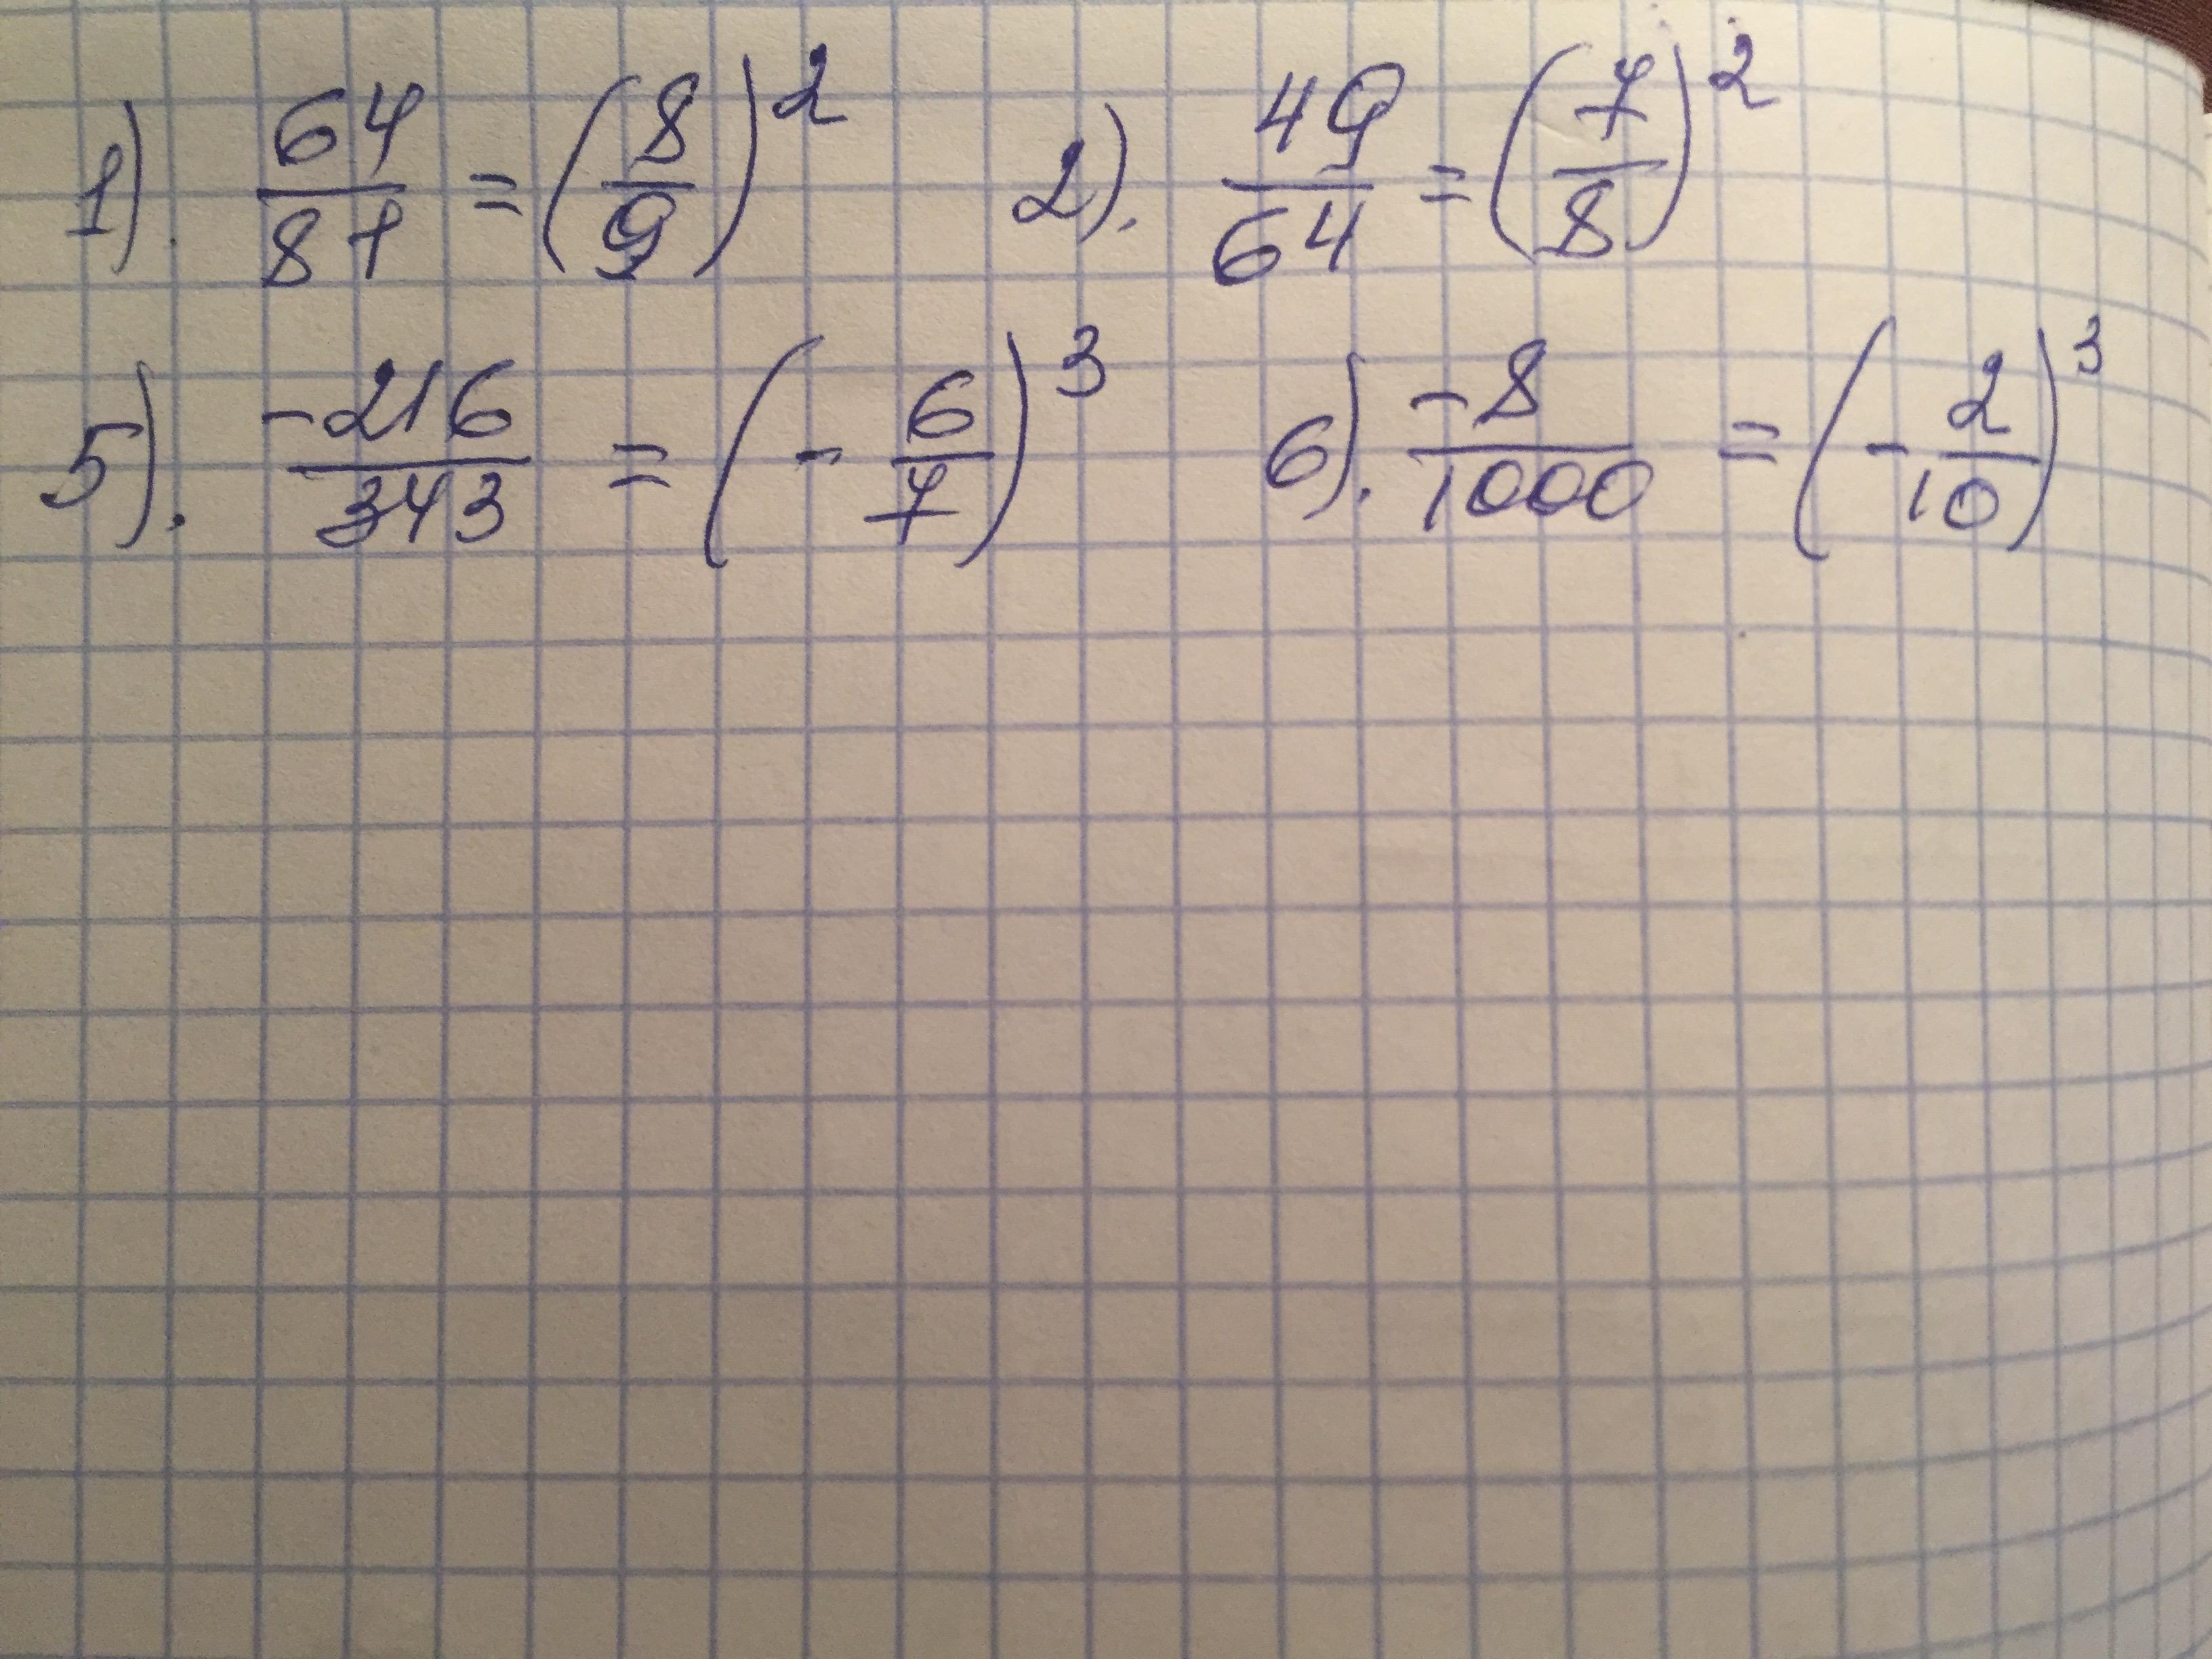 1). 64/81 = (8/9)² 2). 49/64 = (7/8)²
5). -216/343 = (- 6/7)³ 6). -8/1000 = (- 2/10)³